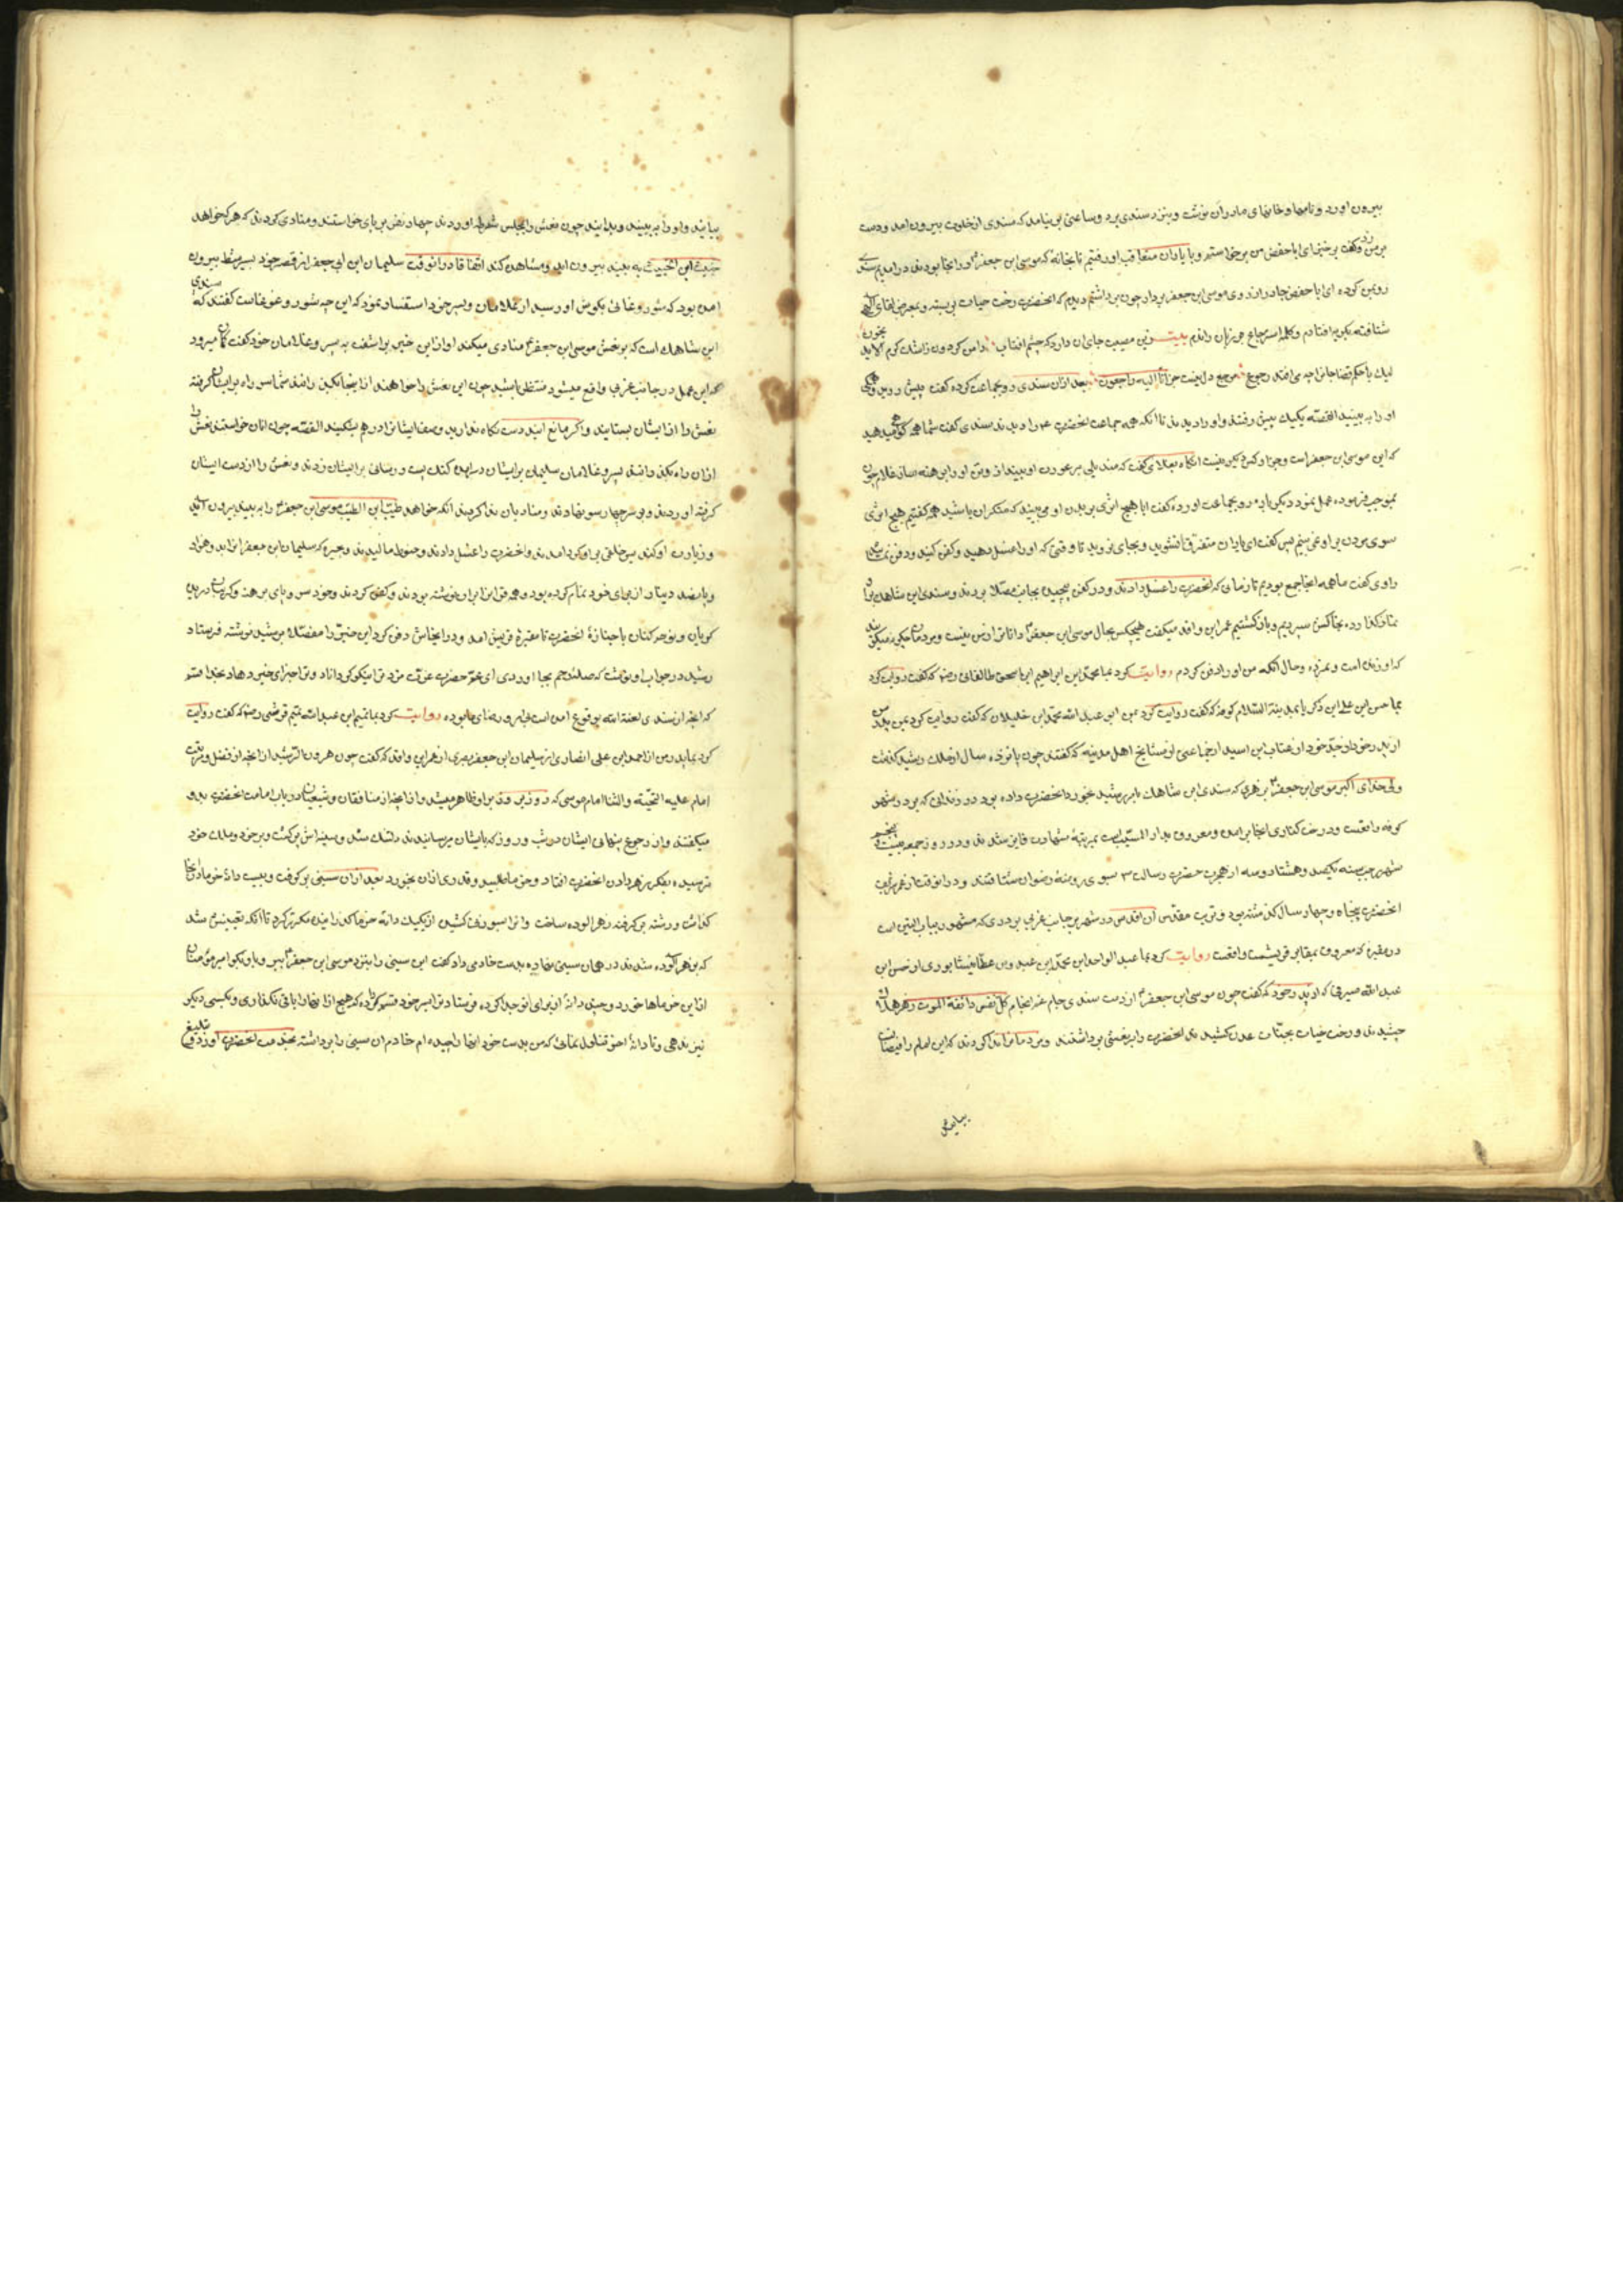 بیرون اورد و نامها و خانهای ما در ان نوشت و بنزد سندی برد و ساعتی بر نیامد که سندی از خلوت بیرون امد و دست
بر من زد و گفت برخیز ای ابا حفص من برخاستم و با یاران متعاقب او رفتیم تا بخانه که موسی ابن جعفر در انجا بودند در امدیم سندی
روبمن کرده ای ابا حفص چادر از روی موسی ابن جعفر بردار چون برداشتم دیدم که انحضرت رخت حیات بر بسته و بمعرض لقای
شتافته بکریه افتادم و کلمه استرجاع بر زبان راندم بیت وین مصیبت جای ان دارد که چشم افتاب دامن کردون ز اشک کرم
لیک با حکم قضا جانرا چه می افتد رجوع مرجع دل نیست جز انا الیه راجعون بعد ازان سندی رو بجماعت کرده گفت پیش روید و
او را به بینید القصه یکیک پیش رفتند و او را دیدند تا انکه همه جماعت انحضرت را دیدند سندی گفت شما همه گواهی میدهید
که این موسی ابن جعفر است و جز او کس دیکر نیست انکاه بغلامی گفت که مندیلی بر عورت او بینداز و تن او را برهنه ساز غلام چون
بموجب فرموده عمل نمود دیکر باره رو بجماعت اورده گفت ایا هیچ اثری بر بدن او می بینید که منکر ان باشید همه گفتیم هیچ اثری
سوی مردن بر او نمی بینیم پس گفت ای یاران متفرق نشوید و بجای نروید تا وقتی که او را غسل دهید و کفن کنید و دفن
راوی گفت ما همه انجا جمع بودیم تا زمانی که انحضرت را غسل دادند و در کفن پیچیده بجانب مصلا بردند و سندی ابن شاهک برا
نماز گذارده بخاکش سپردیم و باز کشتیم عمر ابن واقد میگفت هیچکس بحال موسی ابن جعفر دانا تر از من نیست و مردمان میگویند
که او زنده است و نمرده و حال انکه من او را دفن کردم روایت کرد بما محمد ابن ابراهیم ابن اسحق طالقانی رضه که گفت روایت کرد
بما حسن ابن علی ابن زکریا بمدینة السلام که گفت روایت کرد بمن ابو عبد الله محمد ابن خلیلان که گفت روایت کرد بمن پدرم
از پدر خود از جد خود از عتاب ابن اسید از جماعتی از مشایخ اهل مدینه که گفتند چون پانزده سال از ملک رشید گذشت
ولی خدای اکبر موسی ابن جعفر بزهری که سندی ابن شاهک بامر رشید بخورد انحضرت داده بود در زندانی که بود در شهر
کوفه واقعست و درخت کناری انجا بر امده و معروف بدار المسیب است بمرتبهٔ شهادت فایز شدند و در روز جمعه بیست و پنجم
شهر رجب سنه یکصد و هشتاد و سه از هجرت حضرت رسالت بسوی روضهٔ رضوان شتافتند و در انوقت از عمر شریف
انحضرت پنجاه و چهار سال گذشته بود و تربت مقدس ان اقدس در شهر بر جانب غربی بر دری که مشهور بباب التین است
در مقبره که معروف بمقابر قریشست واقعست روایت کرد بما عبد الواحد ابن محمد ابن عبدوس عطار نیشابوری از حسن ابن
عبد الله صیرفی که از پدر خود که گفت چون موسی ابن جعفر از دست سندی جام غم انجام کل نفس ذائقة الموت زهر هلاک
چشیدند و رخت حیات بجنات عدن کشیدند انحضرت را بر نعشی برداشتند و مردمانرا ندا کردند که این امام رافضیان
بیا ئید
بیائید و او را به بینید و بدانید چون نعش را بمجلس شرطه اوردند چهار نفر بر پای خواستند و منادی کردند که هر که خواهد
خبیث ابن الخبیث به بیند بیرون اید و مشاهده کند اتفاقا در انوقت سلیمان ابن ابی جعفر از قصر خود بسر شط بیرون
امده بود که شور و غوغائی بگوش او رسید از غلامان و پسر خود استفسار نمود که این چه شور و غوغاست گفتند که سندی
ابن شاهک است که بر نعش موسی ابن جعفر منادی میکند او از این خبر بر اشفت به پسر و غلامان خود گفت گمان میرود
که این عمل در جانب غربی واقع میشود منتظر باشید چون این نعش را خواهند از اینجا بگذرانند شما سر راه بر ایشان گرفته
نعش را از ایشان بستانید و اگر مانع ایند دست نگاه ندارید و صف ایشانرا در هم بشکنید القصه چون انان خواستند نعش را
ازان راه بگذرانند پسر و غلامان سلیمان بر ایشان در امده کتک بر ایشان زدند و نعش را از دست ایشان
گرفته اوردند و بر سر چهار سو نهادند و منادیان ندا کردند انکه خواهد طیب ابن الطیب موسی ابن جعفر را به بیند بیرون اید
و زیارت او کند پس خلقی بر او گرد امدند و انحضرت را غسل دادند و حنوط مالیدند و حبره که سلیمان ابن جعفر انرا بدو هزار
و پانصد دینار از برای خود تمام کرده بود و همه قران بران نوشته بودند و کفن کردند و خود سر و پای برهنه و گریبان دریده
گریان و نوحه کنان با جنازهٔ انحضرت تا مقبرهٔ قریش امد و در انجاش دفن کرد این خبر را مفصلا برشید نوشته فرستاد
رشید در جواب او نوشت که صلهٔ رحم بجا اوردی ای عم حضرت عزت مزد ترا نیکو گرداناد و ترا جزای خیر دهاد بخدا قسم
که انچه از سندی لعنة الله بوقوع امده است نه بامر و رضای ما بوده روایت کرد بما تمیم ابن عبد الله تمیم قرشی رضه که گفت روایت
کرد بما پدر من از احمد ابن علی انصاری از سلیمان ابن جعفر بصری از عمر ابن واقد که گفت چون هرون الرشید از انچه از فضل و مرتبت
امام علیه التحیة و الثنا امام موسی که روز بروز بر او ظاهر میشد و از انچه از منافقان و شیعیان در باب امامت انحضرت بدو
میگفتند و از رجوع پنهانی ایشان در شب و روز که بایشان میرسانیدند دلتنگ شد و سینه اش پر کشت و بر خود و ملک خود
ترسیده بفکر زهر دادن انحضرت افتاد و خرما طلبید و قدری ازان بخورد بعد ازان سینی بر گرفت و بیست دانه خرما در انجا
گذاشت و رشته بر گرفته زهر الوده ساخت و انرا بسوزن کشیده از یکیک دانه خرما گذرانید مکرر کرد تا انکه یقینش شد
که بزهر الوده شدند در همان سینی نهاده بدست خادمی داد گفت این سینی را بنزد موسی ابن جعفر ببر و باو بگو امیر مؤمنان
از این خرماها خورد و چند دانهٔ از برای تو جدا کرده فرستاد ترا بسر خود قسم کرده که هیچ از انها را باقی نگذاری و بکسی دیکر
نیز ندهی و تا دانهٔ اخر تناول نمائی که من بدست خود انها را چیده ام خادم ان سینی را برداشته بخدمت انحضرت اورد و تبلیغ